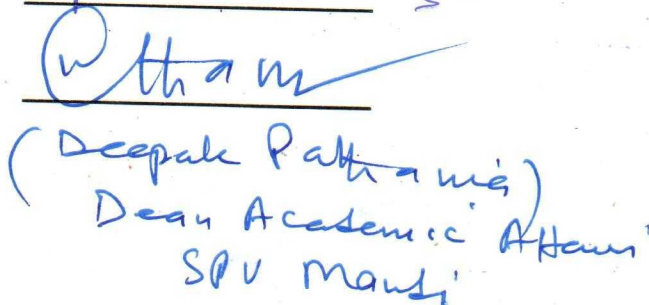 (Deepak Pathania)
Dean Academic Affairs
SPU Mandi